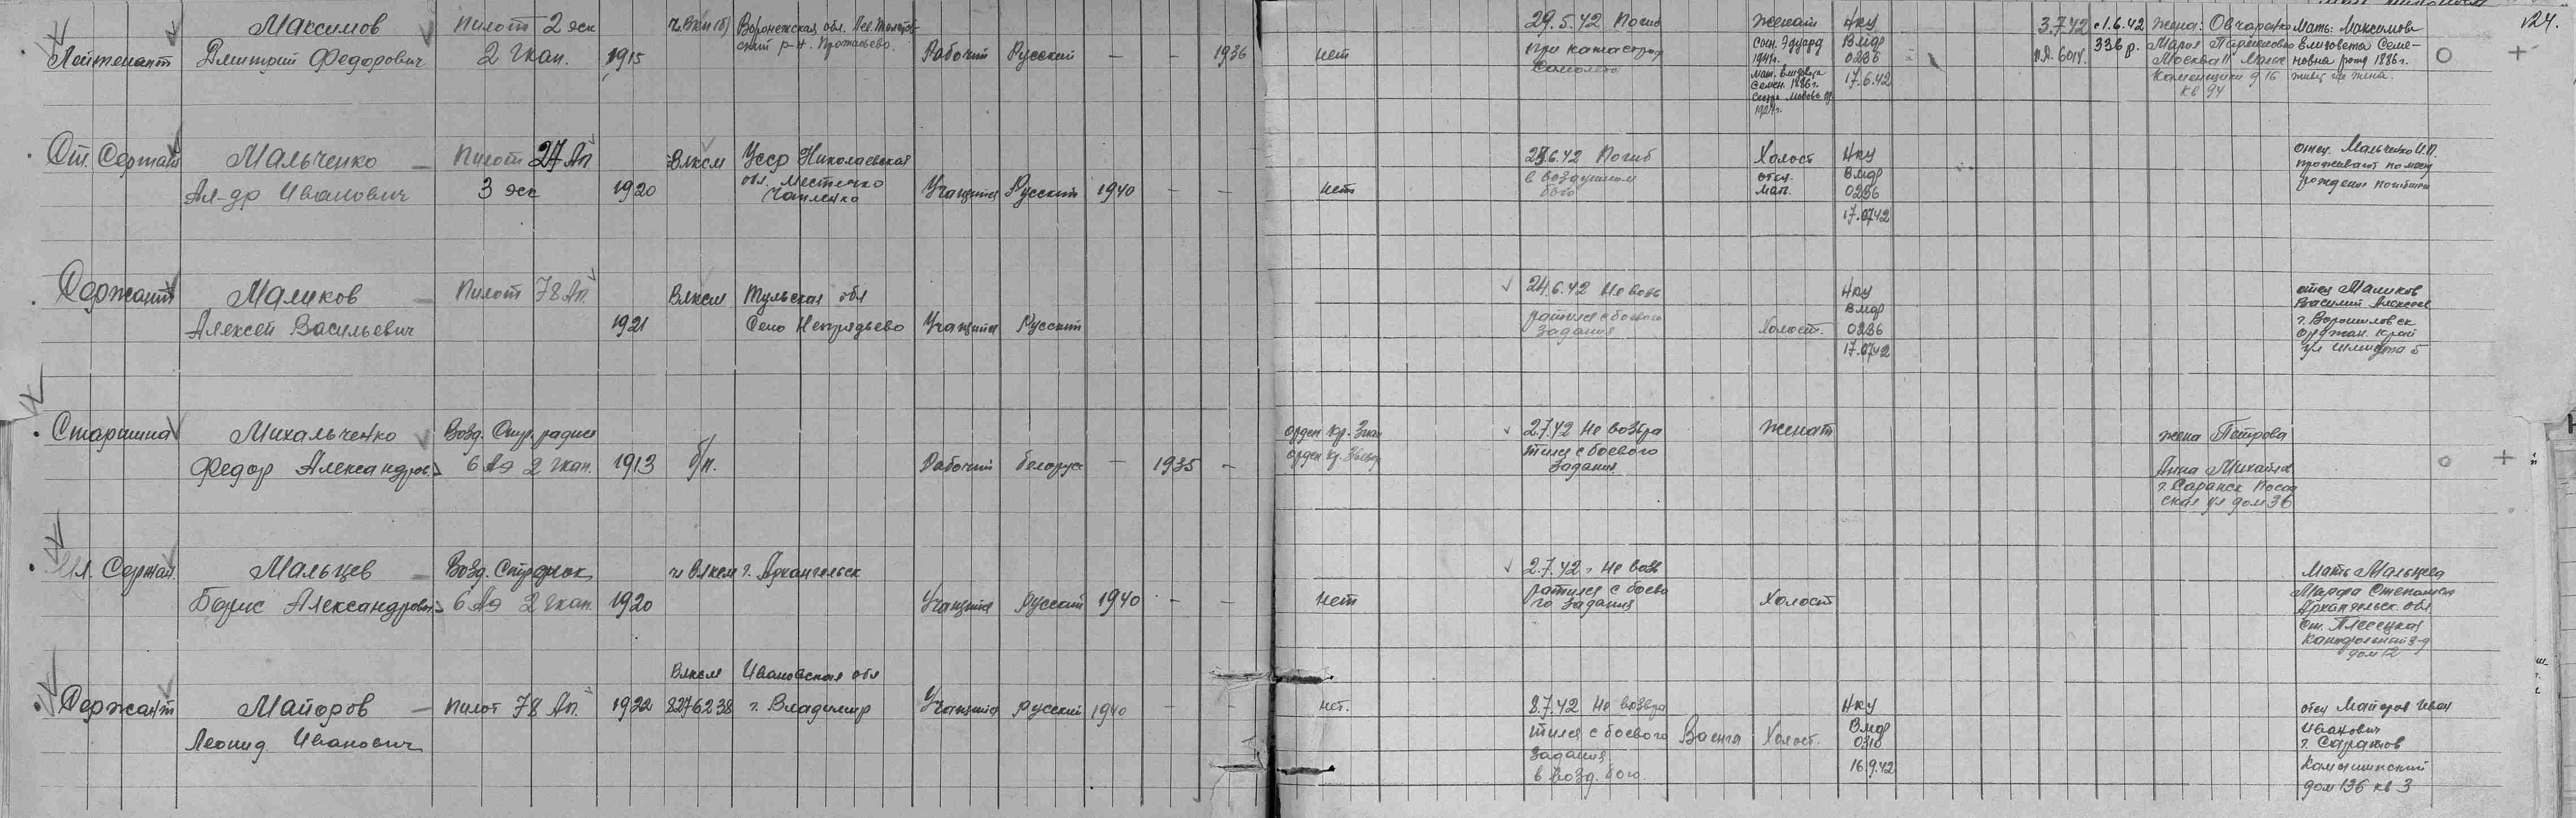 124.
Лейтенант
Максимов
Дмитрий Федорович
Пилот 2 эск
2 гкап.
1915
ч. Вкп(б)
Воронежская обл. Лев. Толстов-
ский р-н.
Рабочий Русский — — 1936
нет
29.5.42 Погиб
при катастроф
Самолета
женат
сын. Эдуард
1941г.
мат. Елизавета
Семен. 1886г.
Нку
Вмф
0236
17.6.42
3.7.42
с 1.6.42
336 р.
жена: Овчаренко
Мария
Москва
Каменщики д 16
кв 94
Мать: Максимова
Елизавета Семе-
новна рожд 1886г.
живет где жена.
Ст. Сержант
Мальченко
Ал-др Иванович
Пилот 27 Ап
3 эск
1920
Влксм
Усср Николаевская
обл. Местечко
Чапленка
Учащийся Русский 1940 — —
нет
Погиб
в воздушном
бою
Холост
отец.
мат.
Нку
Вмф
0236
17.0742
отец. Мальченко И.П.
проживает по месту
рождения погибшего
Сержант
Маликов
Алексей Васильевич
Пилот 78 Ап.
1921
Влксм
Тульская обл
Село Непрядьево
Учащийся Русский
24.6.42 Не возв
ратился с боевого
задания
Холост.
Нку
Вмф
0236
17.0742
отец Маликов
Василий Алексеев
г. Ворошиловск
Орджон. край
ул Шмидта 5
Старшина
Михальченко
Федор Александров.
Возд. Стр. радист
6 Аэ 2 гкап.
1913
б/п.
Рабочий белорус — 1935 —
Орден Кр. Знам
Орден Кр. Звезд
2.7.42 Не возвра
тился с боевого
Задания
Женат
жена Петрова
Анна Михайл
г. Саранск Посоп
ская ул дом 36
Мл. Сержан.
Мальцев
Борис Александрович
Возд. Стрелок
6 Аэ 2 гкап.
1920
чл Влксм
г. Архангельск
Учащийся Русский 1940 — —
нет
2.7.42 Не возв
ратился с боево
го задания
Холост
Мать Мальцева
Марфа Степановна
Архангельск. обл
ст. Плесецкая
Канифольный з-д
дом 12
Сержант
Майоров
Леонид Иванович
Пилот 78 Ап.
1922
Влксм
8276238
Ивановская обл
г. Владимир
Учащийся Русский 1940 — —
нет.
8.7.42 Не возвра
тился с боевого
задания
в возд. бою.
Ваенга
Холост.
Нку
Вмф
0318
16.9.42
отец Майоров Иван
Иванович
г. Саратов
Камышинский
дом 136 кв 3